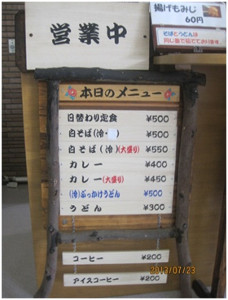 営業中
揚げもみじ
60円
本日のメニュー
日替わり定食 ¥500
白そば(冷・ ¥500
白そば(冷)(大盛り) ¥550
カレー ¥400
カレー(大盛り) ¥450
(冷)ぶっかけうどん ¥500
うどん ¥300
コーヒー ¥200
アイスコーヒー ¥200
2013/07/23